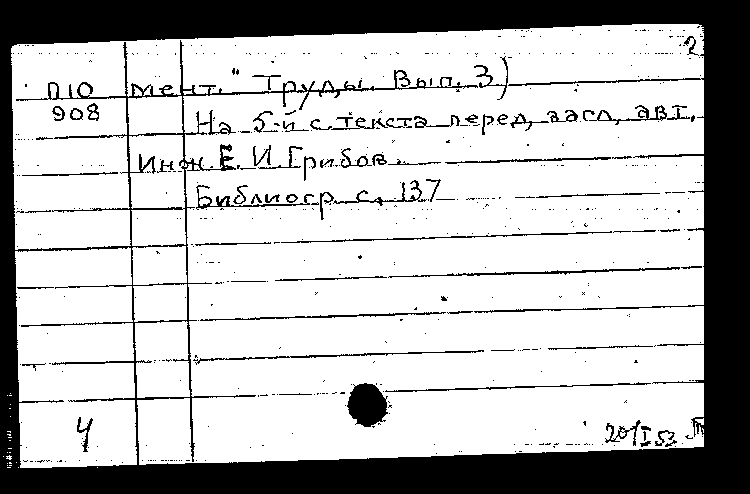 2
П10 мент." Труды. Вып. 3)
908 На 5-й с. текста перед. засл. авт.
инж. Е. И. Грибов.
Библиогр. с. 137
4
20/I 52